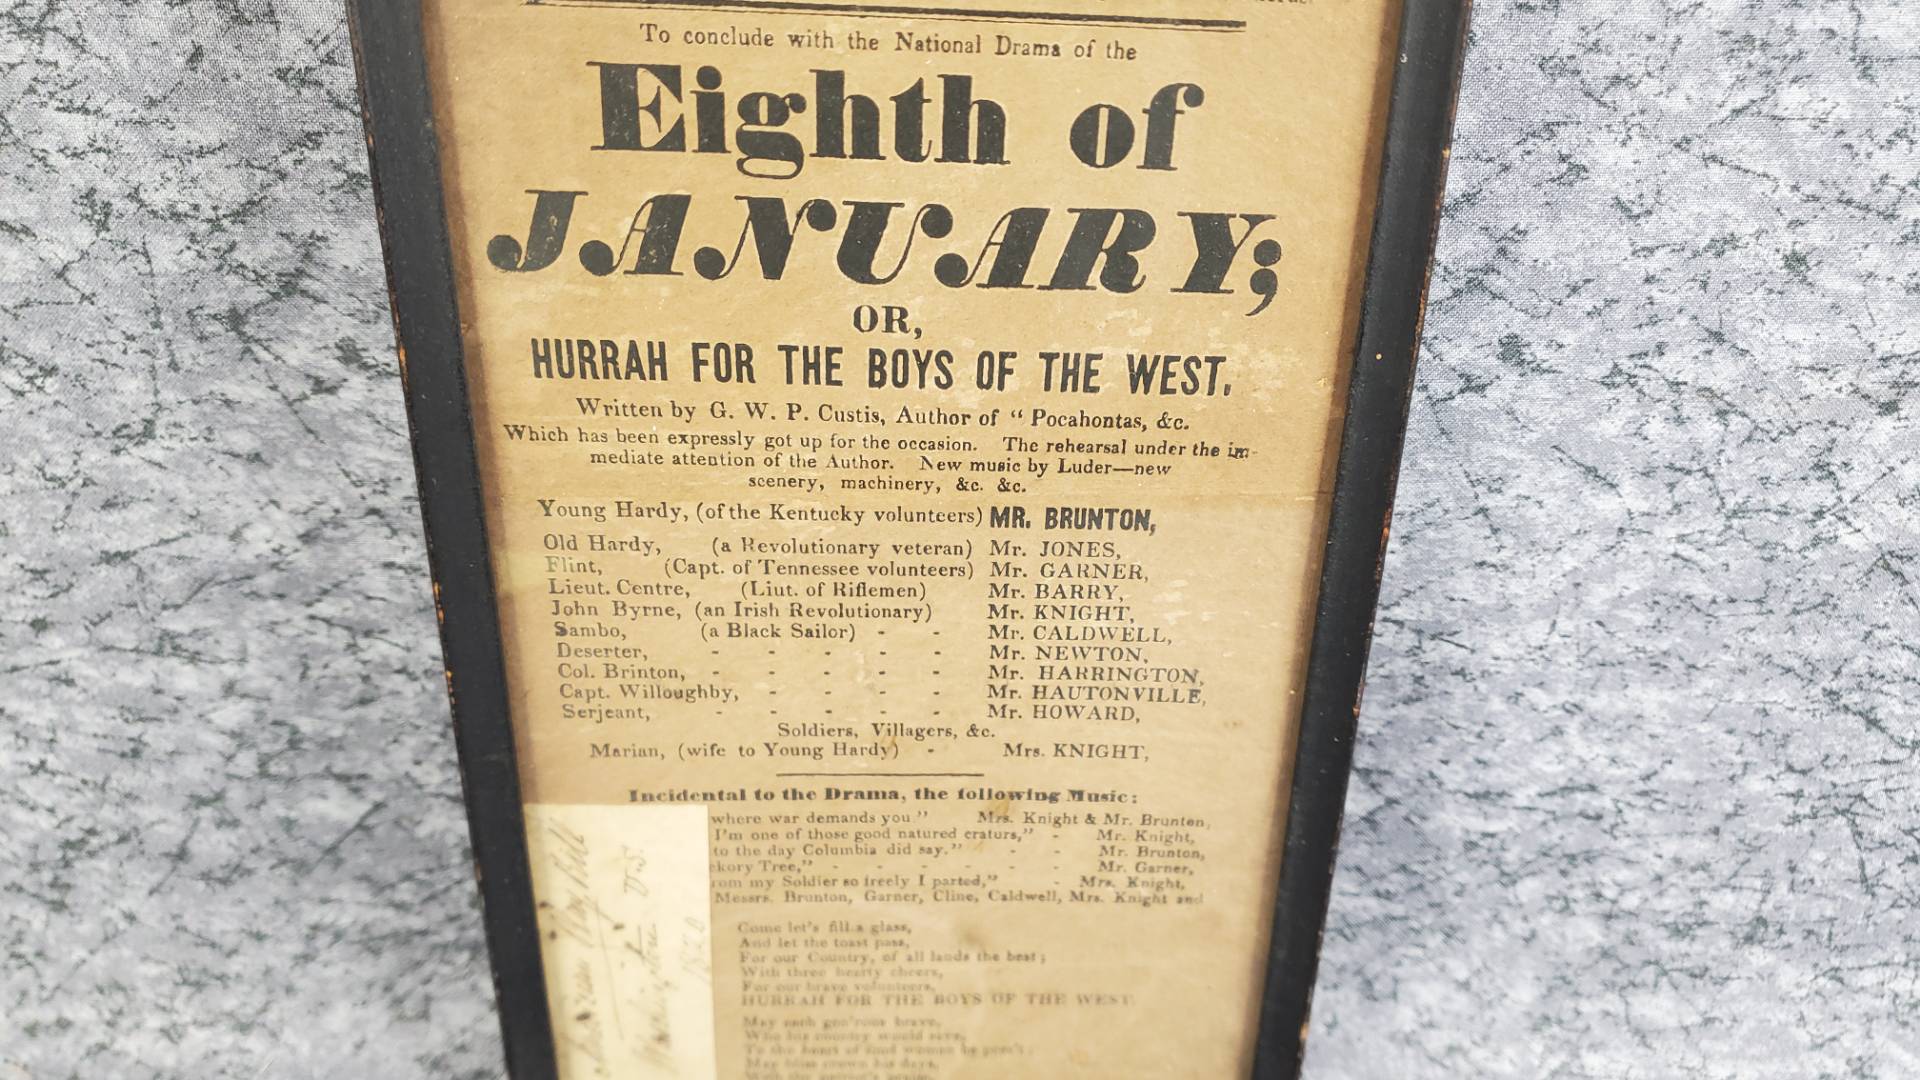 To conclude with the National Drama of the
Eighth of
JANUARY;
OR,
HURRAH FOR THE BOYS OF THE WEST.
Written by G. W. P. Custis, Author of “ Pocahontas, &c.
Which has been expressly got up for the occasion. The rehearsal under the im-
mediate attention of the Author. New music by Luder—new
scenery, machinery, &c. &c.
Young Hardy, (of the Kentucky volunteers) MR. BRUNTON,
Old Hardy, (a Revolutionary veteran) Mr. JONES,
Flint, (Capt. of Tennessee volunteers) Mr. GARNER,
Lieut. Centre, (Liut. of Riflemen) Mr. BARRY,
John Byrne, (an Irish Revolutionary) Mr. KNIGHT,
Sambo, (a Black Sailor) - - Mr. CALDWELL,
Deserter, - - - - - Mr. NEWTON,
Col. Brinton, - - - - - Mr. HARRINGTON,
Capt. Willoughby, - - - - Mr. HAUTONVILLE,
Serjeant, - - - - - Mr. HOWARD,
Soldiers, Villagers, &c.
Marian, (wife to Young Hardy) - Mrs. KNIGHT,
Incidental to the Drama, the following Music:
where war demands you” Mrs. Knight & Mr. Brunton,
I'm one of those good natured craturs,” - Mr. Knight,
to the day Columbia did say.” - - Mr. Brunton,
ckory Tree,” - - - - - - Mr. Garner,
rom my Soldier so freely I parted,” - Mrs. Knight,
Messrs. Brunton, Garner, Cline, Caldwell, Mrs. Knight and
Come let's fill a glass,
And let the toast pass,
For our Country, of all lands the best;
With three hearty cheers,
For our brave volunteers,
HURRAH FOR THE BOYS OF THE WEST.
May each gen'rous brave,
Who his country would save,